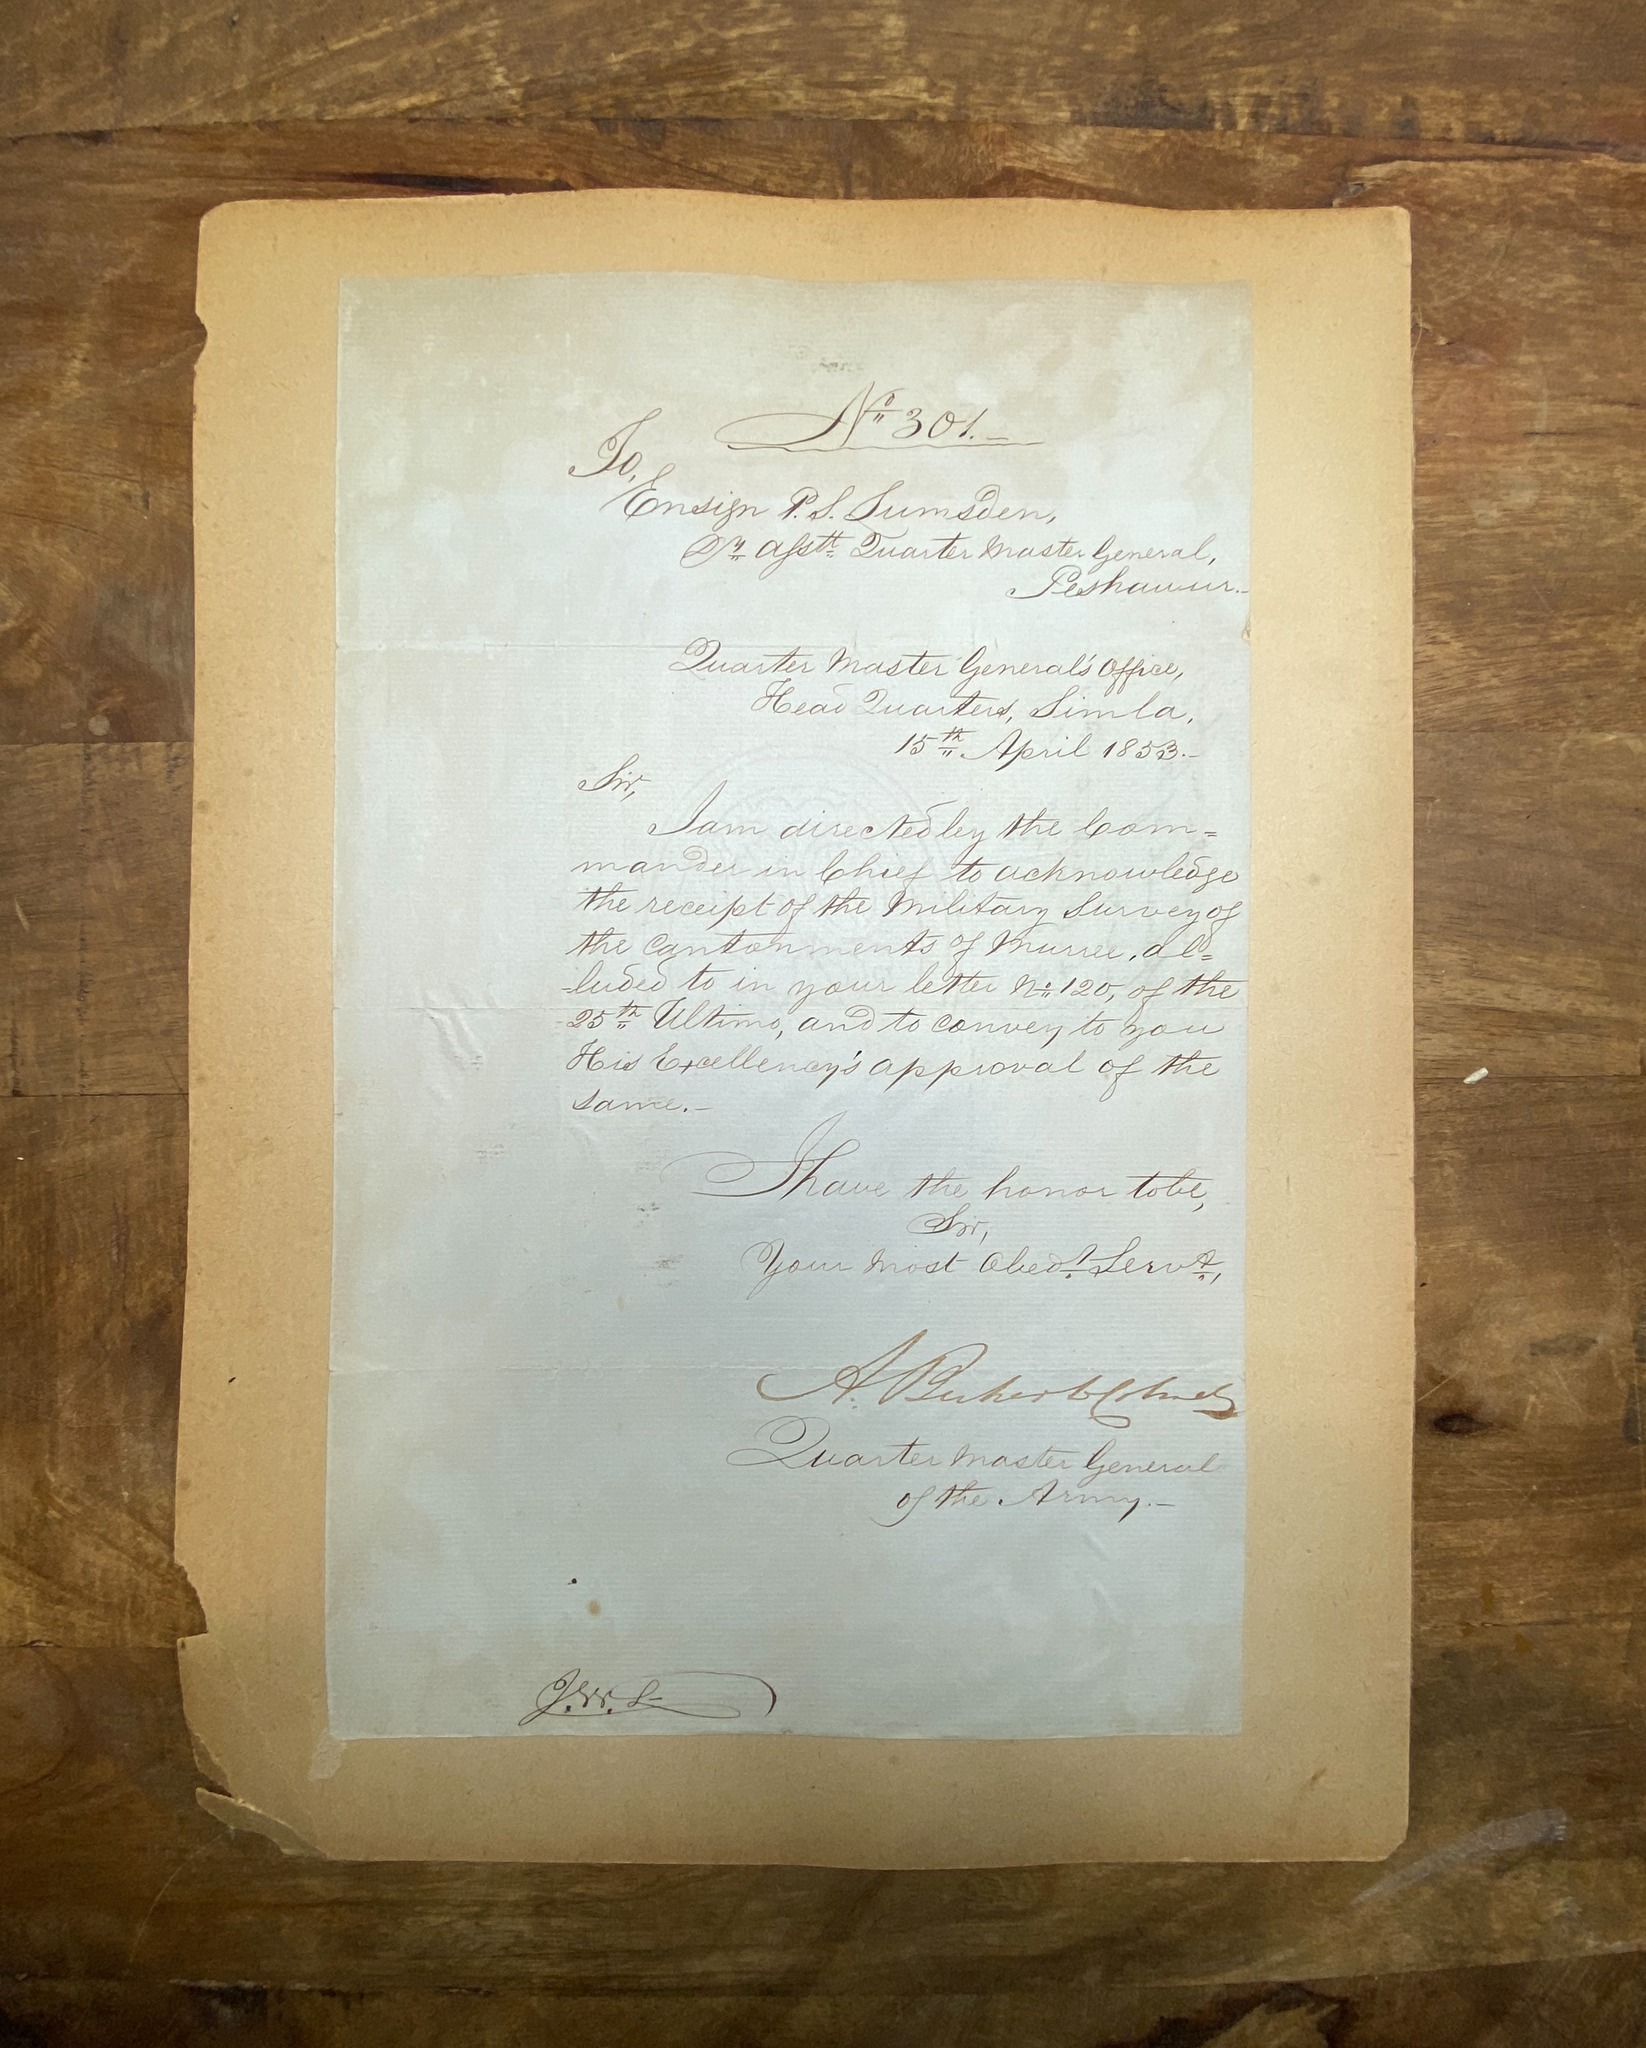 No 301.
To,
Ensign P. S. Lumsden,
Dy. Asstt. Quarter Master General,
Peshawur.
Quarter Master General's Office,
Head Quarters, Simla,
15th April 1853.
Sir,
I am directed by the Com=
mander in Chief to acknowledge
the receipt of the Military Survey of
the cantonments of Murree, al=
-luded to in your letter No. 120, of the
25th Ultimo, and to convey to you
His Excellency's approval of the
same.
I have the honor to be,
Sir,
Your most Obedt. Servt.,
A. Colonel
Quarter Master General
of the Army.